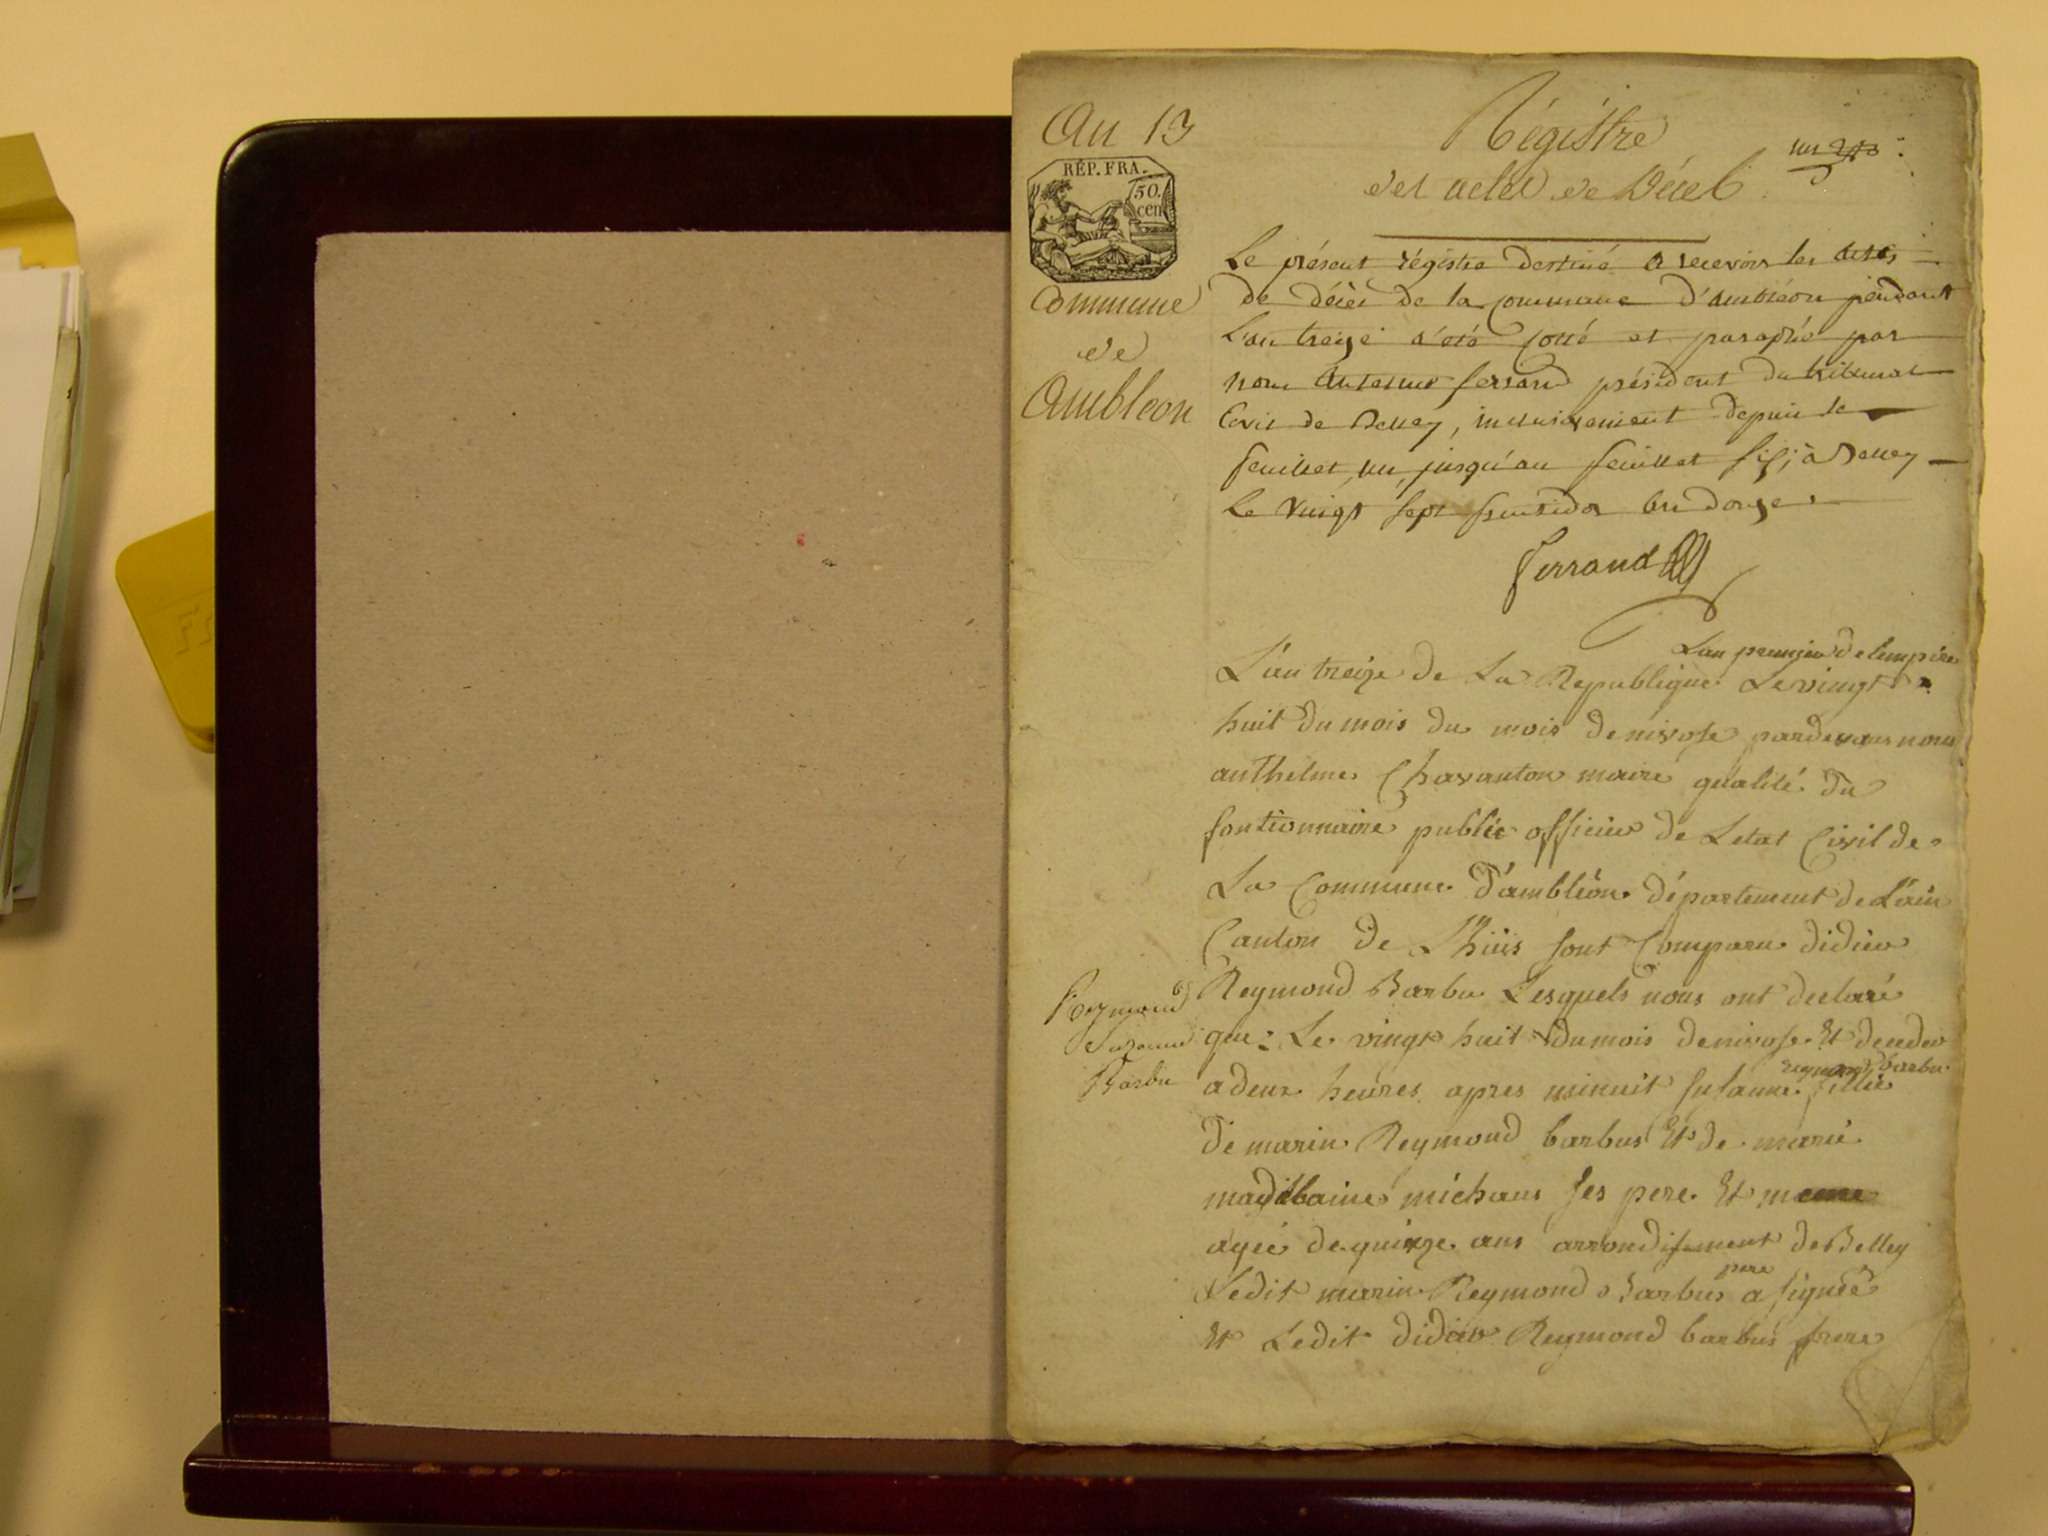 An 13
RÉP. FRA.
50.
cen
Commune
de
Ambleon
Régistre
des actes de Décès
Le présent régistre destiné a recevoir les actes
de décès de la commune d'ambléon pendant
L'an treize a été cotté et paraphé par
nous Antelme ferrand président du tribunal
Civil de Belley, inclusivement depuis le
feuillet un, jusqu'au feuillet six, à Belley
Le vingt sept fructidor an douze.
ferrand
Lan premier de lempire
L'an treize de La Republique Le vingt
huit du mois du mois de nivose pardevant nous
anthelme Chavanton maire qualité du
fontionnaire public officier de Letat Civil de
La Commune d'ambléon département de L'ain
Canton de Lhüis sont Comparu didier
Reymond Barbu Lesquels nous ont declaré
que: Le vingt huit du mois de nivose Et decedee
Reymond
Suzanne
Barbu
reymond barbu
a deux heures apres minuit susanne fillie
de marin Reymond barbus Et de marie
michaus ses pere Et
agée de quinze ans arrondisement de Belley
pere
Ledit marin Reymond Barbus a signeé
Et Ledit didier Reymond barbus frere